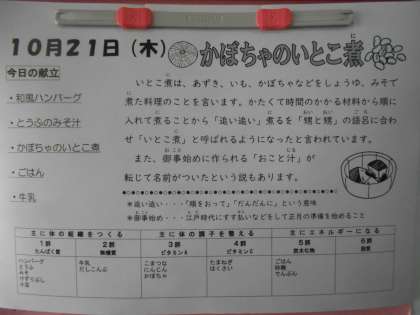 10月21日（木）
かぼちゃのいとこ煮
に
今日の献立
・和風ハンバーグ
・とうふのみそ汁
・かぼちゃのいとこ煮
・ごはん
・牛乳
いとこ煮は、あずき、いも、かぼちゃなどをしょうゆ、みそで
煮た料理のことを言います。かたくて時間のかかる材料から順に
入れて煮ることから「追い追い」煮るを「甥と甥」の語呂に合わ
せ「いとこ煮」と呼ばれるようになったと言われています。
また、御事始めに作られる「おこと汁」が
転じて名前がついたという説もあります。
＊追い追い・・・「順をおって」「だんだんに」という意味
＊御事始め・・・江戸時代にすす払いなどをして正月の準備を始めること
主に体の組織をつくる
主に体の調子を整える
主にエネルギーになる
1群 2群 3群 4群 5群 6群
たんぱく質 無機質 ビタミンA ビタミンC 炭水化物 脂質
ハンバーグ
とうふ
みそ
牛乳
だしこんぶ
こまつな
にんじん
かぼちゃ
たまねぎ
はくさい
ごはん
砂糖
でんぷん